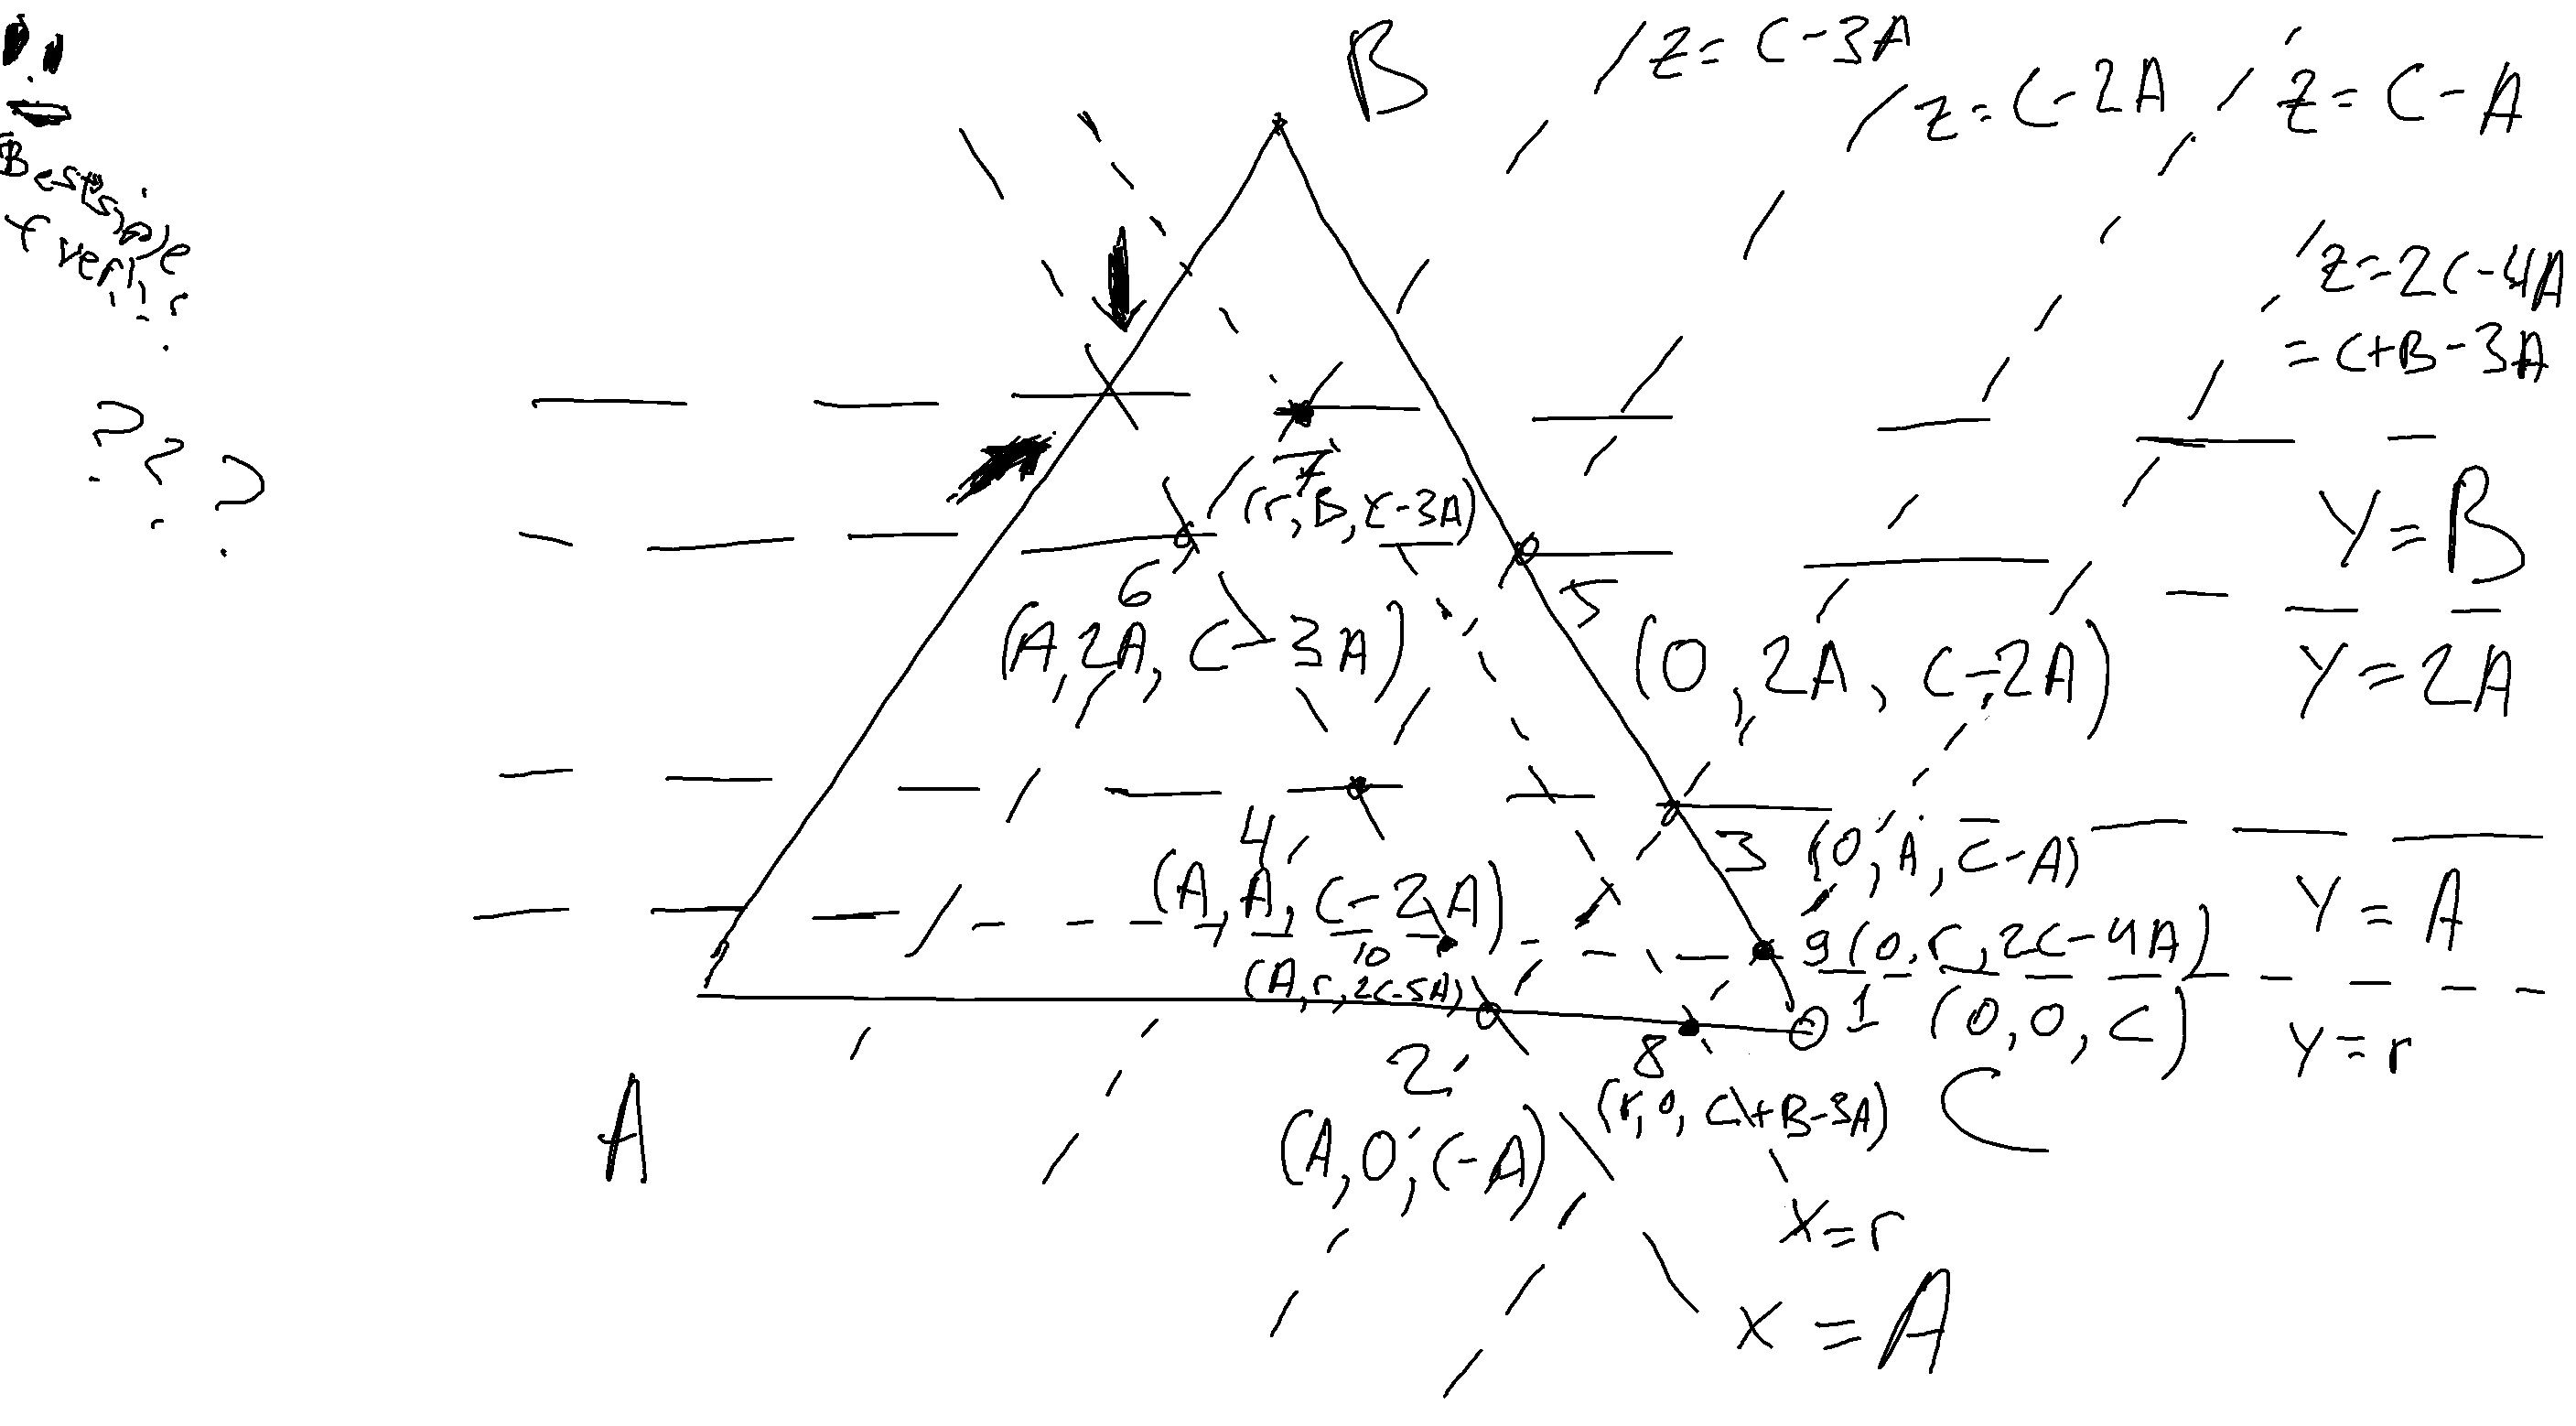 B
z = C - 3A
z = C - 2A
z = C - A
z = 2C - 4A
= C + B - 3A
? ? ?
7
(r, B, C - 3A)
Y = B
6
(A, 2A, C - 3A)
5
(0, 2A, C - 2A)
Y = 2A
4
(A, A, C - 2A)
3 (0, A, C - A)
Y = A
10
(A, r, 2C - 5A)
9 (0, r, 2C - 4A)
1 (0, 0, C)
Y = r
2
(A, 0, C - A)
8
(r, 0, C + B - 3A)
A
C
x = r
x = A